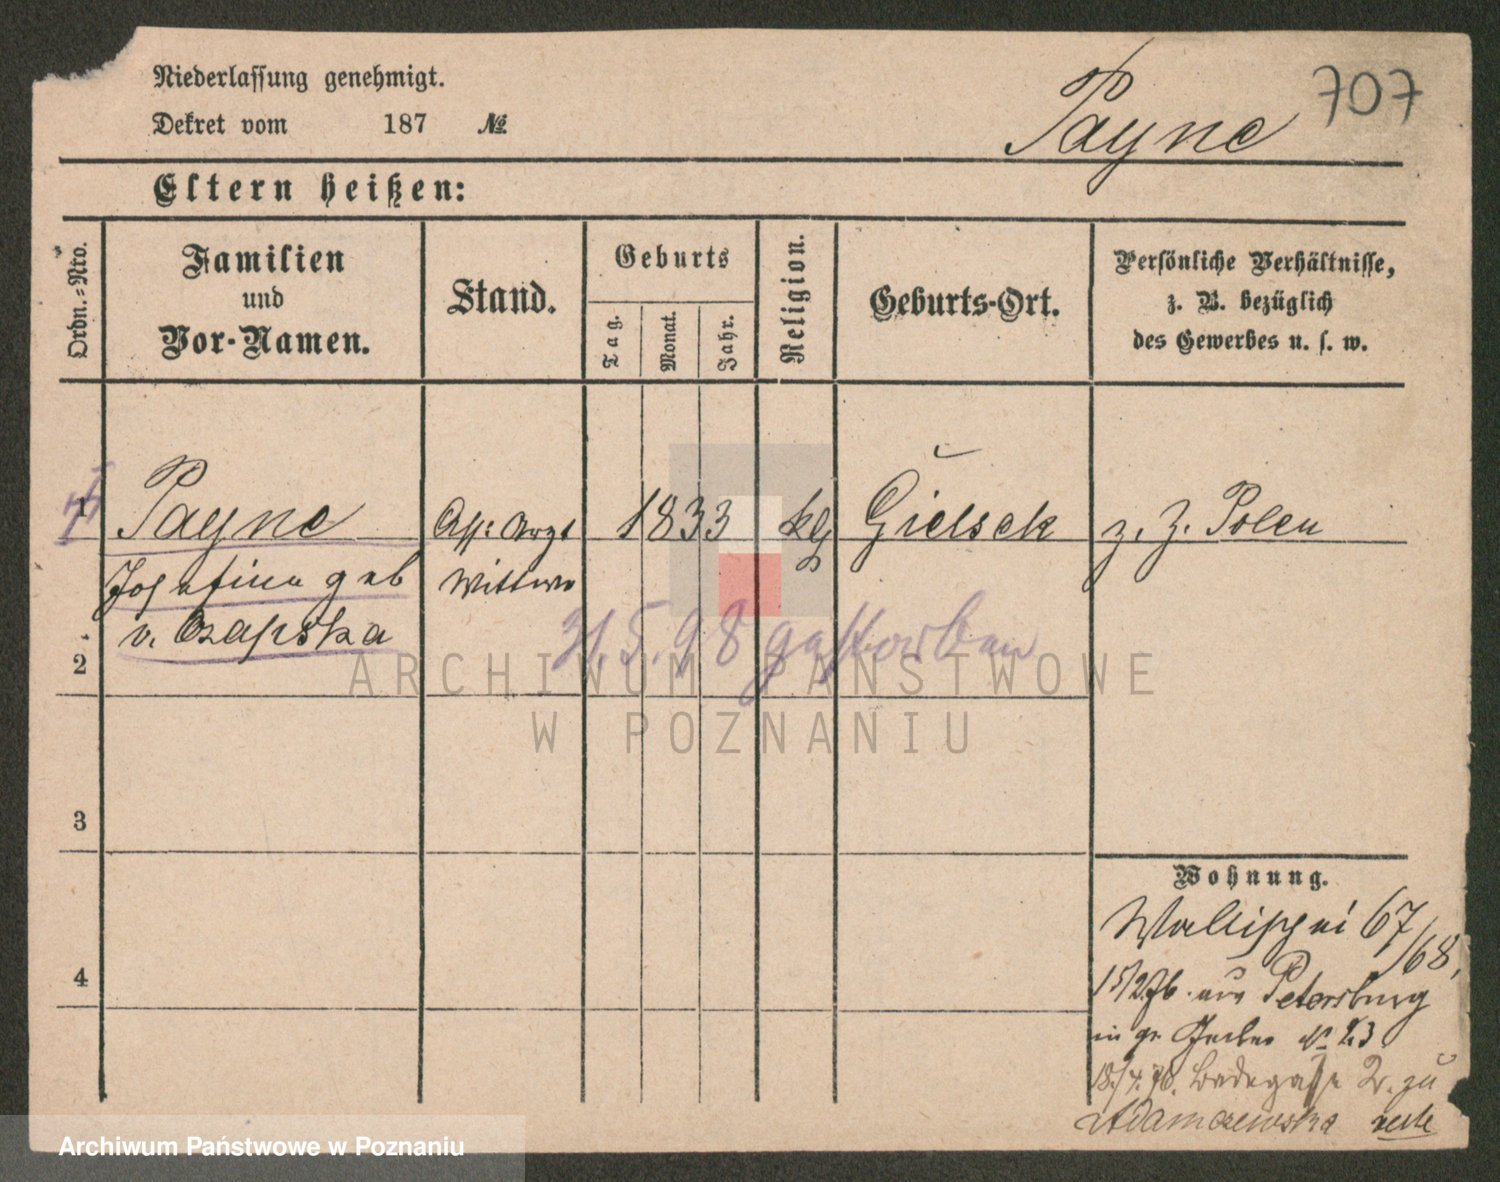 Niederlassung genehmigt.
Dekret vom 187 №
Payne
707
Eltern heißen:
Ordn.-Nro.
Familien
und
Vor-Namen.
Stand.
Geburts
Tag.
Monat.
Jahr.
Religion.
Geburts-Ort.
Persönliche Verhältnisse,
z. B. bezüglich
des Gewerbes u. s. w.
1
Payne
Josefine geb
v. Czapska
Ass. Arzt
Wittwe
1833
Gielsck
z. Z. Polen
31.5.98 gestorben
2
3
4
Wohnung.
Wallischei 67/68,
15/2 76. aus Petersburg
in gr Gerber № 23
18/4. 76. Badegasse 2. zu
Adamczewska
ARCHIWUM PAŃSTWOWE
W POZNANIU
Archiwum Państwowe w Poznaniu